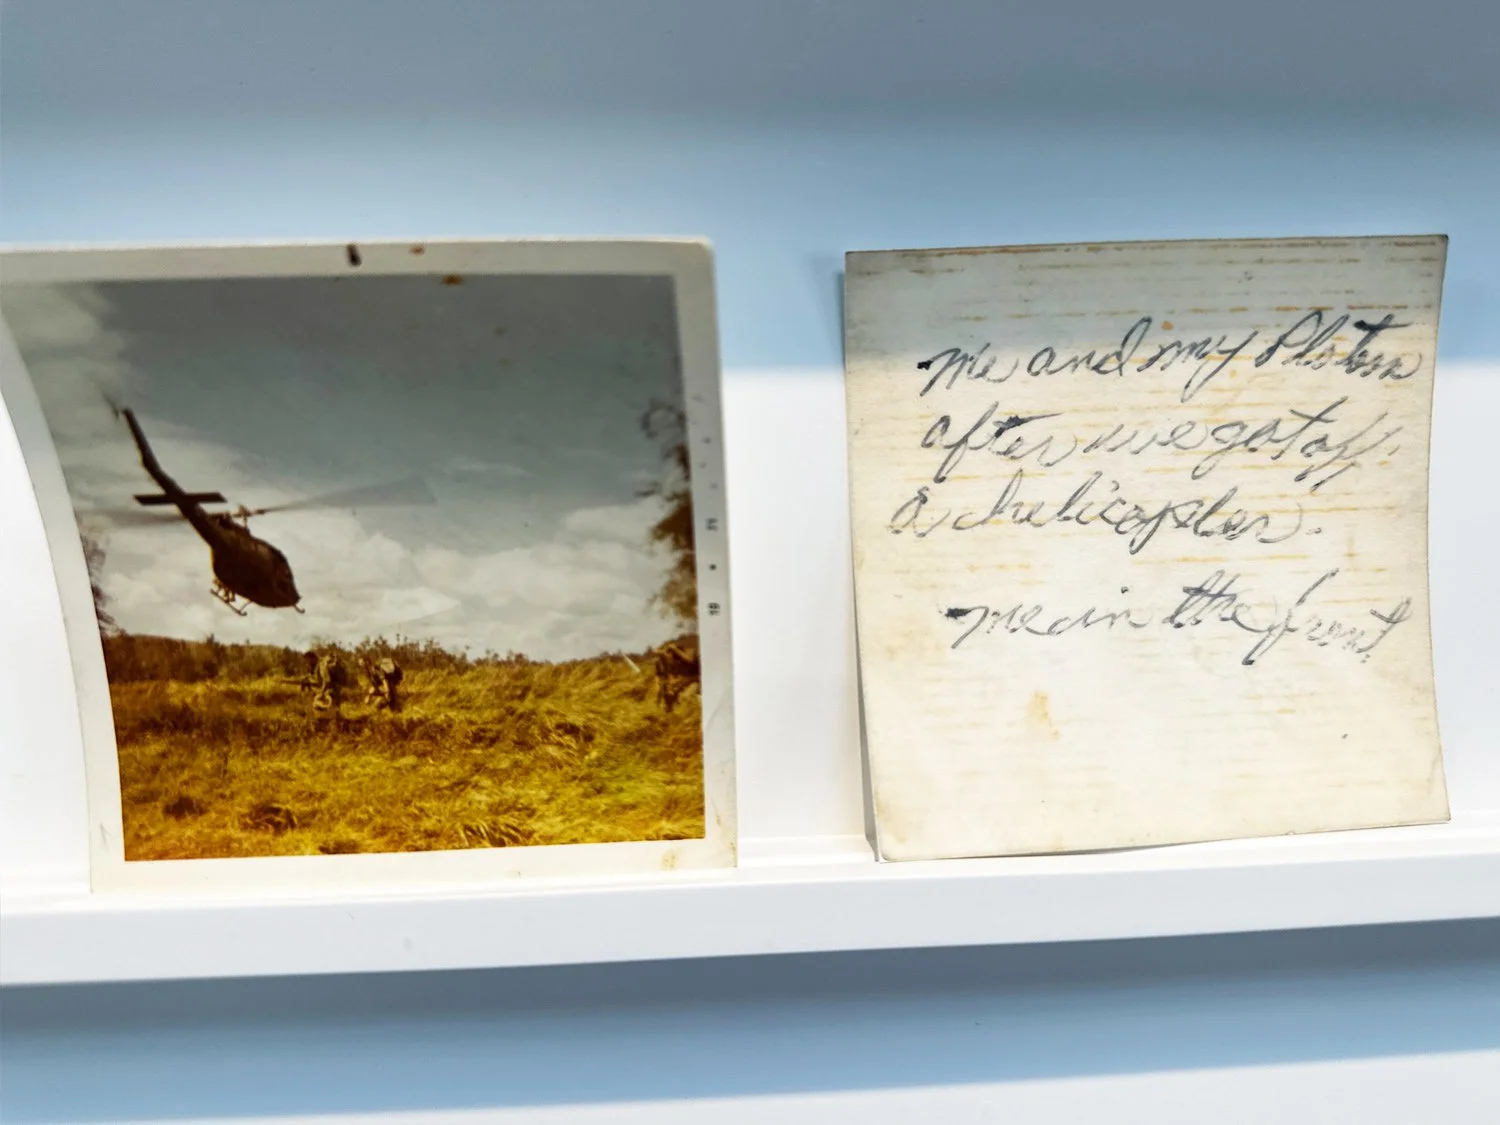 71
me and my Platoon
after we got off
a helicopter.
me in the front.